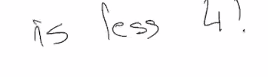 is less 4!